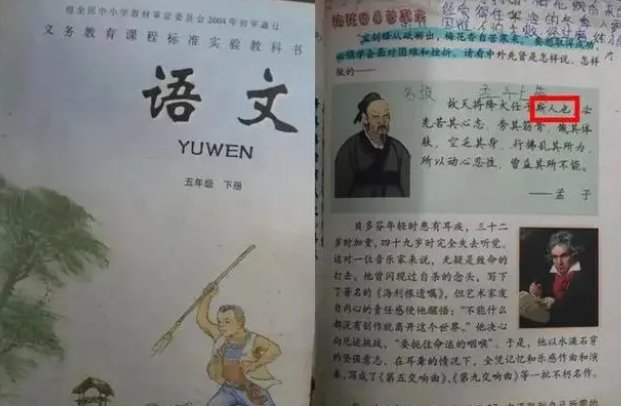 经全国中小学教材审定委员会2004年初审通过
义务教育课程标准实验教科书
语文
YUWEN
五年级 下册
宝剑锋从磨砺出，梅花香自苦寒来。要想取得成功，
必须学会面对困难和挫折。请看中外先贤是怎样说、怎样
做的——
故天将降大任于斯人也，必
先苦其心志，劳其筋骨，饿其体
肤，空乏其身，行拂乱其所为，
所以动心忍性，曾益其所不能。
——孟子
贝多芬年轻时患有耳疾，三十二
岁时加重，四十九岁时完全失去听觉。
这对一位音乐家来说，无疑是致命的
打击。他曾闪现过自杀的念头，写下
了著名的《海利根遗嘱》，但艺术家发
自内心的责任感使他醒悟：“不能什么
都没有创作就离开这个世界。”他决心
向厄运挑战，“要扼住命运的咽喉”。于是，他以水滴石穿
的坚强意志，在耳聋的情况下，全凭记忆和乐感作曲和演
奏，写成了《第五交响曲》、《第九交响曲》等一批不朽名作。